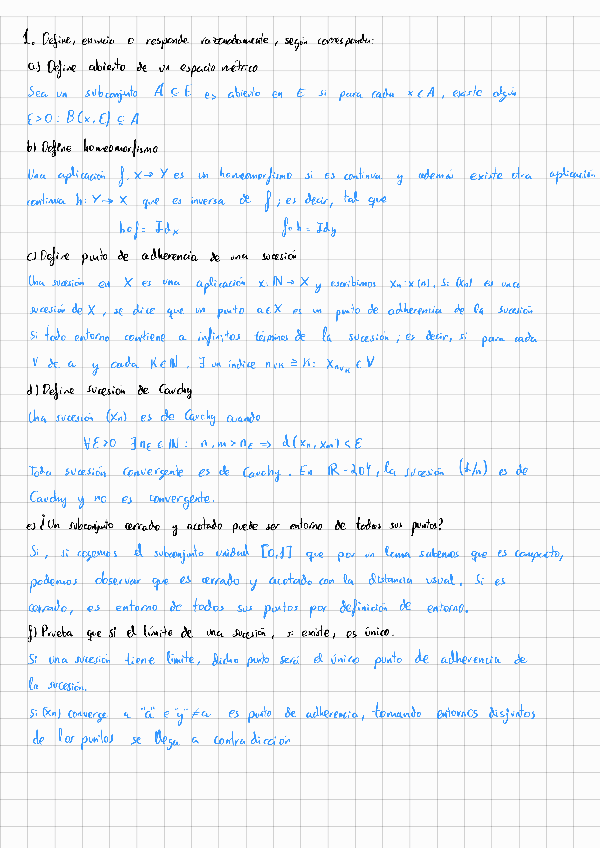 1. Define, enuncia o responde razonadamente, según corresponda:
a) Define abierto de un espacio métrico
Sea un subconjunto A ⊆ E es abierto en E si para cada x ∈ A, existe algún
ε > 0 : B(x, ε) ⊆ A
b) Define homeomorfismo
Una aplicación f: X → Y es un homeomorfismo si es continua y además existe otra aplicación
continua h: Y → X que es inversa de f; es decir, tal que
h∘f = Id_X f∘h = Id_Y
c) Define punto de adherencia de una sucesión
Una sucesión en X es una aplicación x: ℕ → X y escribimos xₙ = x(n). Si (xₙ) es una
sucesión de X, se dice que un punto a ∈ X es un punto de adherencia de la sucesión
si todo entorno contiene a infinitos términos de la sucesión; es decir, si para cada
V de a y cada K ∈ ℕ, ∃ un índice n_VK ≥ K: x_n_VK ∈ V
d) Define sucesion de Cauchy
Una sucesión (xₙ) es de Cauchy cuando
∀ε > 0 ∃n_ε ∈ ℕ : n, m > n_ε ⇒ d(xₙ, xₘ) < ε
Toda sucesión convergente es de Cauchy. En ℝ - {0}, la sucesión (1/n) es de
Cauchy y no es convergente.
e) ¿Un subconjunto cerrado y acotado puede ser entorno de todos sus puntos?
Si, si cogemos el subconjunto unidad [0,1] que por un lema sabemos que es compacto,
podemos observar que es cerrado y acotado con la distancia usual. Si es
cerrado, es entorno de todos sus puntos por definición de entorno.
f) Prueba que si el límite de una sucesión, si existe, es único.
Si una sucesión tiene límite, dicho punto será el único punto de adherencia de
la sucesión.
Si (xₙ) converge a "a" e "y" ≠ a es punto de adherencia, tomando entornos disjuntos
de los puntos se llega a contradicción